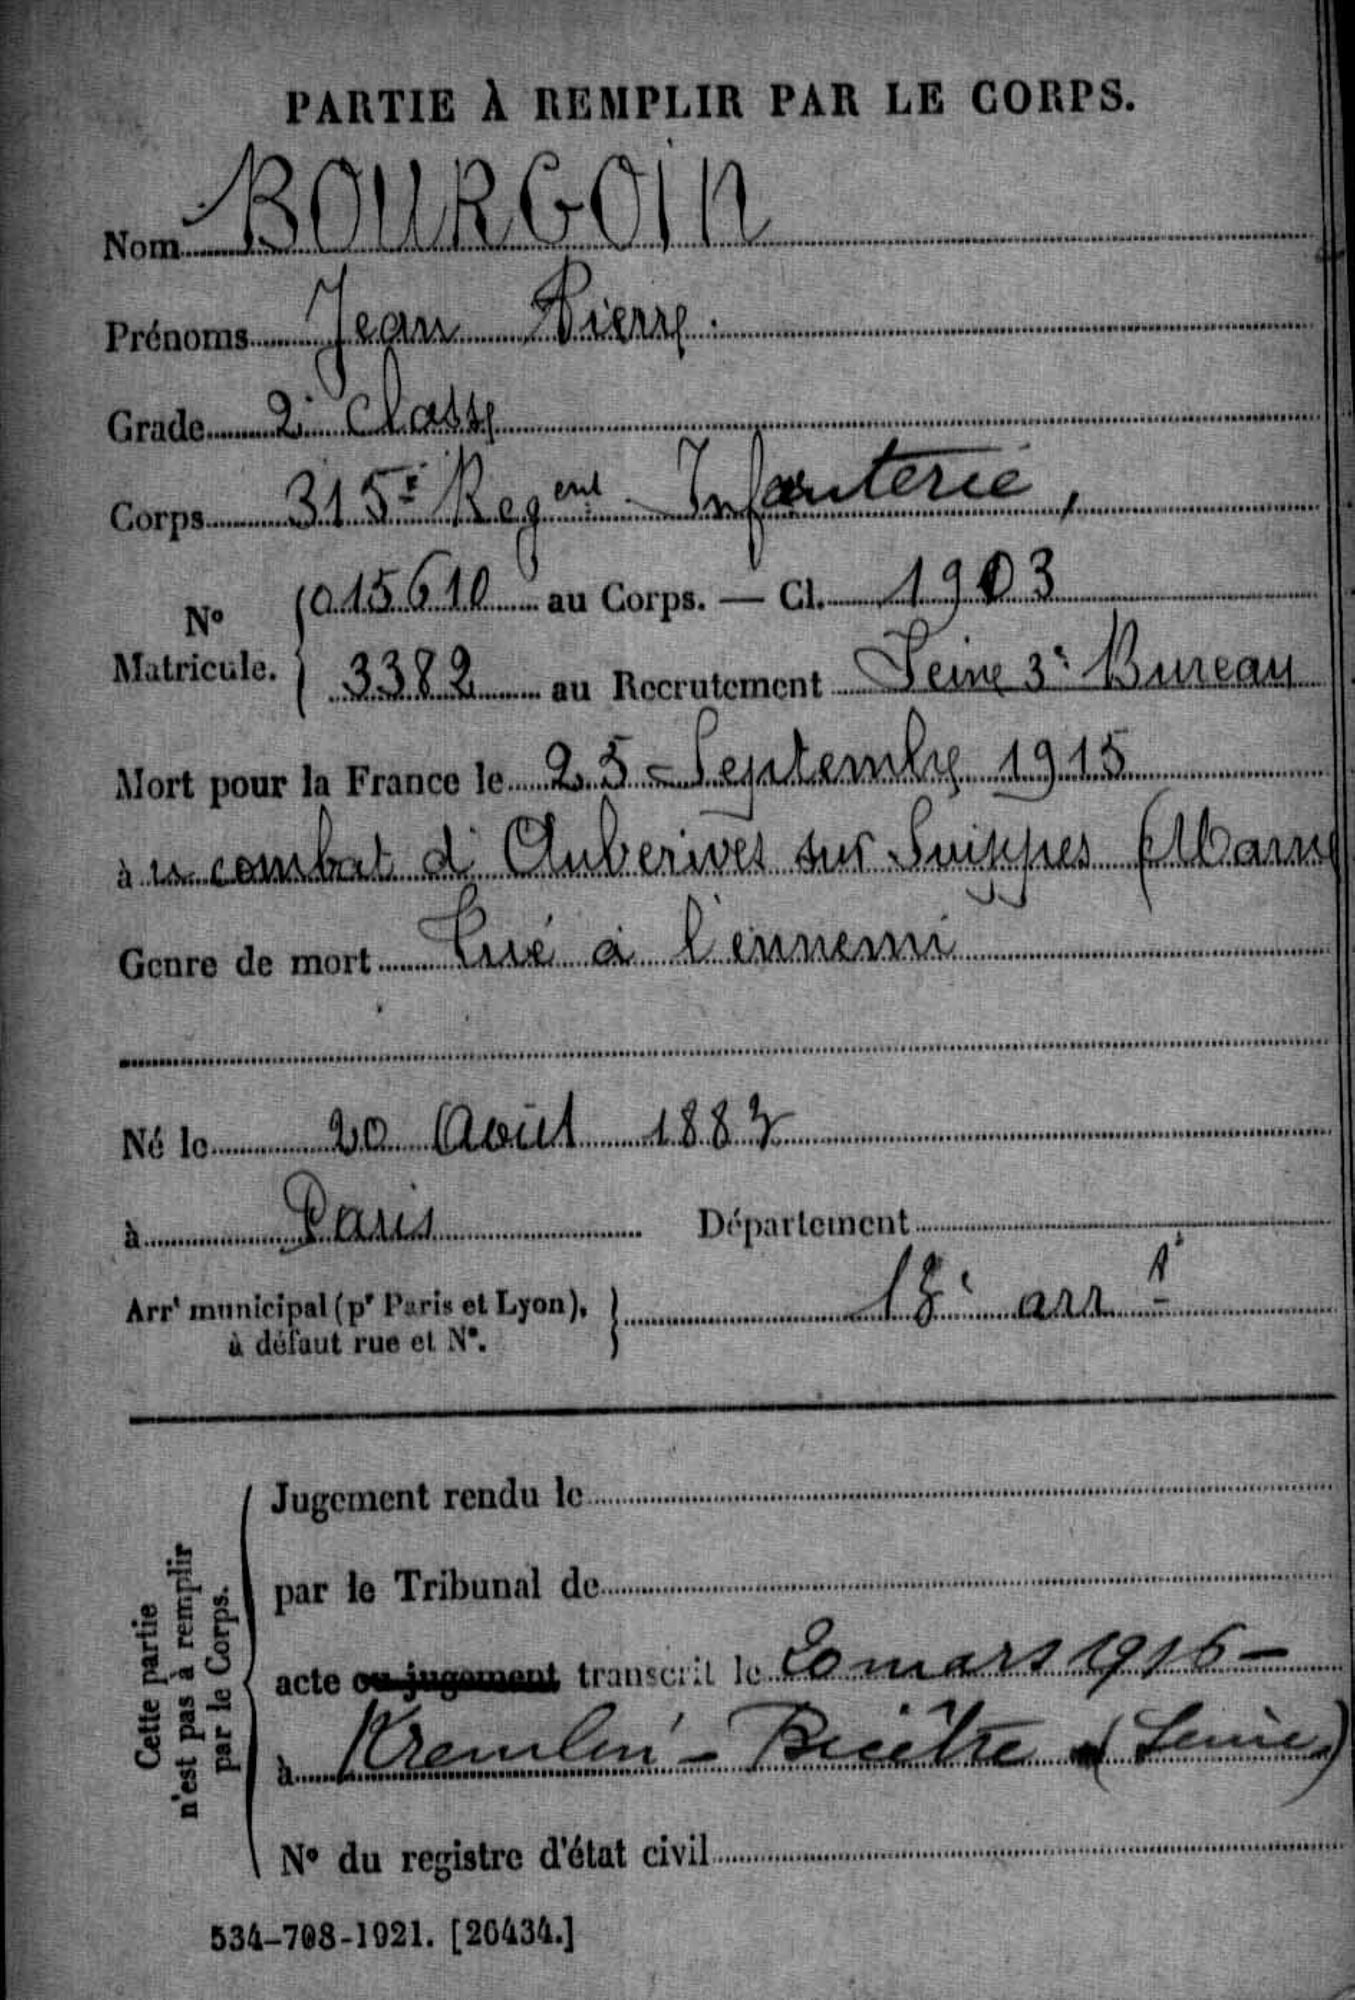 PARTIE À REMPLIR PAR LE CORPS.
Nom BOURGOIN
Prénoms Jean Pierre.
Grade 2e Classe
Corps 315e Regent Infanterie,
No Matricule. 015610 au Corps. — Cl. 1903
3382 au Recrutement Seine 3e Bureau
Mort pour la France le 25 - Septembre 1915
à combat d'Auberives sur Suippes (Marne
Genre de mort Tué à l'ennemi
Né le 20 Août 1883
à Paris Département
Arrt municipal (pr Paris et Lyon), 18e arrt
à défaut rue et No.
Cette partie n'est pas à remplir par le Corps.
Jugement rendu le
par le Tribunal de
acte ou jugement transcrit le 20 mars 1916 —
à Kremlin - Bicêtre (Seine)
No du registre d'état civil
534-708-1921. [26434.]